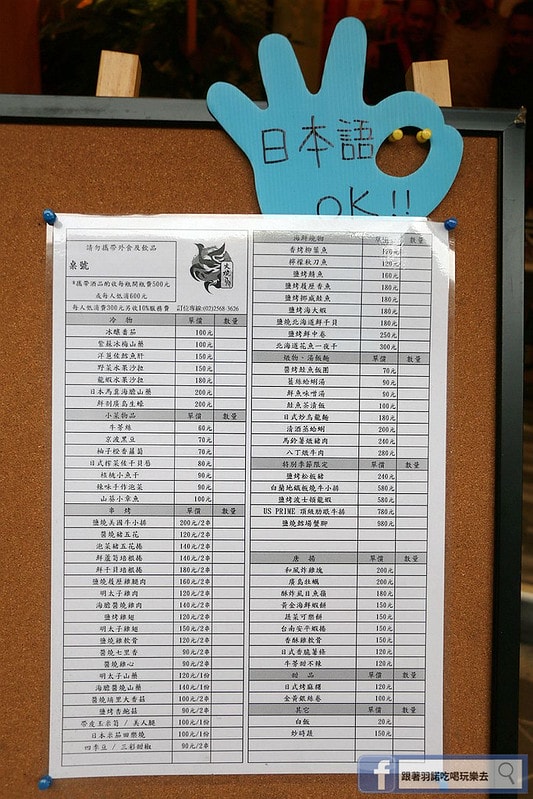 日本語
OK!!
請勿攜帶外食及飲品
桌號
*攜帶酒品酌收每瓶開瓶費500元
或每人低消600元
每人低消300元另收10%服務費
火燒鳥
訂位專線:(02)2568-3626
冷 物 單價 數量
冰釀番茄 100元
紫蘇冰梅山藥 100元
洋蔥佐鱈魚肝 150元
野菜水果沙拉 150元
龍蝦水果沙拉 180元
日本馬糞海膽山藥 200元
鮮剖廣島生蠔 200元
小菜物品 單價 數量
牛蒡絲 60元
京渡黑豆 70元
柚子橙香蘿蔔 70元
日式榨菜佐干貝唇 80元
核桃小魚干 90元
辣味手作泡菜 90元
山葵小章魚 100元
串 烤 單價 數量
鹽燒美國牛小排 200元/2串
醬燒豬五花 120元/2串
泡菜豬五花捲 140元/2串
鮮蘆筍培根捲 140元/2串
鮮干貝培根捲 180元/2串
鹽燒履歷雞腿肉 160元/2串
明太子雞肉 120元/2串
海膽醬燒雞肉 140元/2串
鹽烤雞翅 120元/2串
明太子雞翅 150元/2串
鹽燒雞軟骨 120元/2串
醬燒七里香 90元/2串
醬燒雞心 90元/2串
明太子山藥 120元/1份
海膽醬燒山藥 140元/1份
醬燒埔里大香菇 100元/2串
鹽烤杏鮑菇 90元/2串
帶皮玉米筍 / 美人腿 100元/1份
日本米茄田樂燒 100元/1份
四季豆 / 三彩甜椒 90元/2串
海鮮燒物 單價 數量
香烤柳葉魚 120元
檸檬秋刀魚 120元
鹽烤鯖魚 160元
鹽烤履歷香魚 180元
鹽烤挪威鮭魚 180元
鹽烤海大蝦 180元
鹽燒北海道鮮干貝 180元
鹽烤鮮中卷 250元
北海道花魚一夜干 300元
燉物、湯飯麵 單價 數量
醬烤鮭魚飯團 70元
薑絲蛤蜊湯 90元
鮮魚味噌湯 90元
鮭魚茶漬飯 100元
日式炒烏龍麵 180元
清酒蒸蛤蜊 200元
馬鈴薯燉豬肉 240元
八丁燉牛肉 280元
特別季節限定 單價 數量
鹽烤松板豬 240元
白蘭地鐵板燒牛小排 580元
鹽烤波士頓龍蝦 580元
US PRIME 頂級肋眼牛排 780元
鹽燒鱈場蟹腳 980元
唐 揚 單價 數量
和風炸雞塊 200元
廣島牡蠣 200元
酥炸虱目魚嶺 180元
黃金海鮮蝦餅 150元
蔬菜可樂餅 150元
台南安平蝦捲 150元
香酥雞軟骨 150元
日式香脆薯條 120元
牛蒡甜不辣 120元
甜 品 單價 數量
日式烤麻糬 120元
金黃銀絲卷 100元
其它 單價 數量
白飯 20元
炒時蔬 150元
f 跟著羽諾吃喝玩樂去